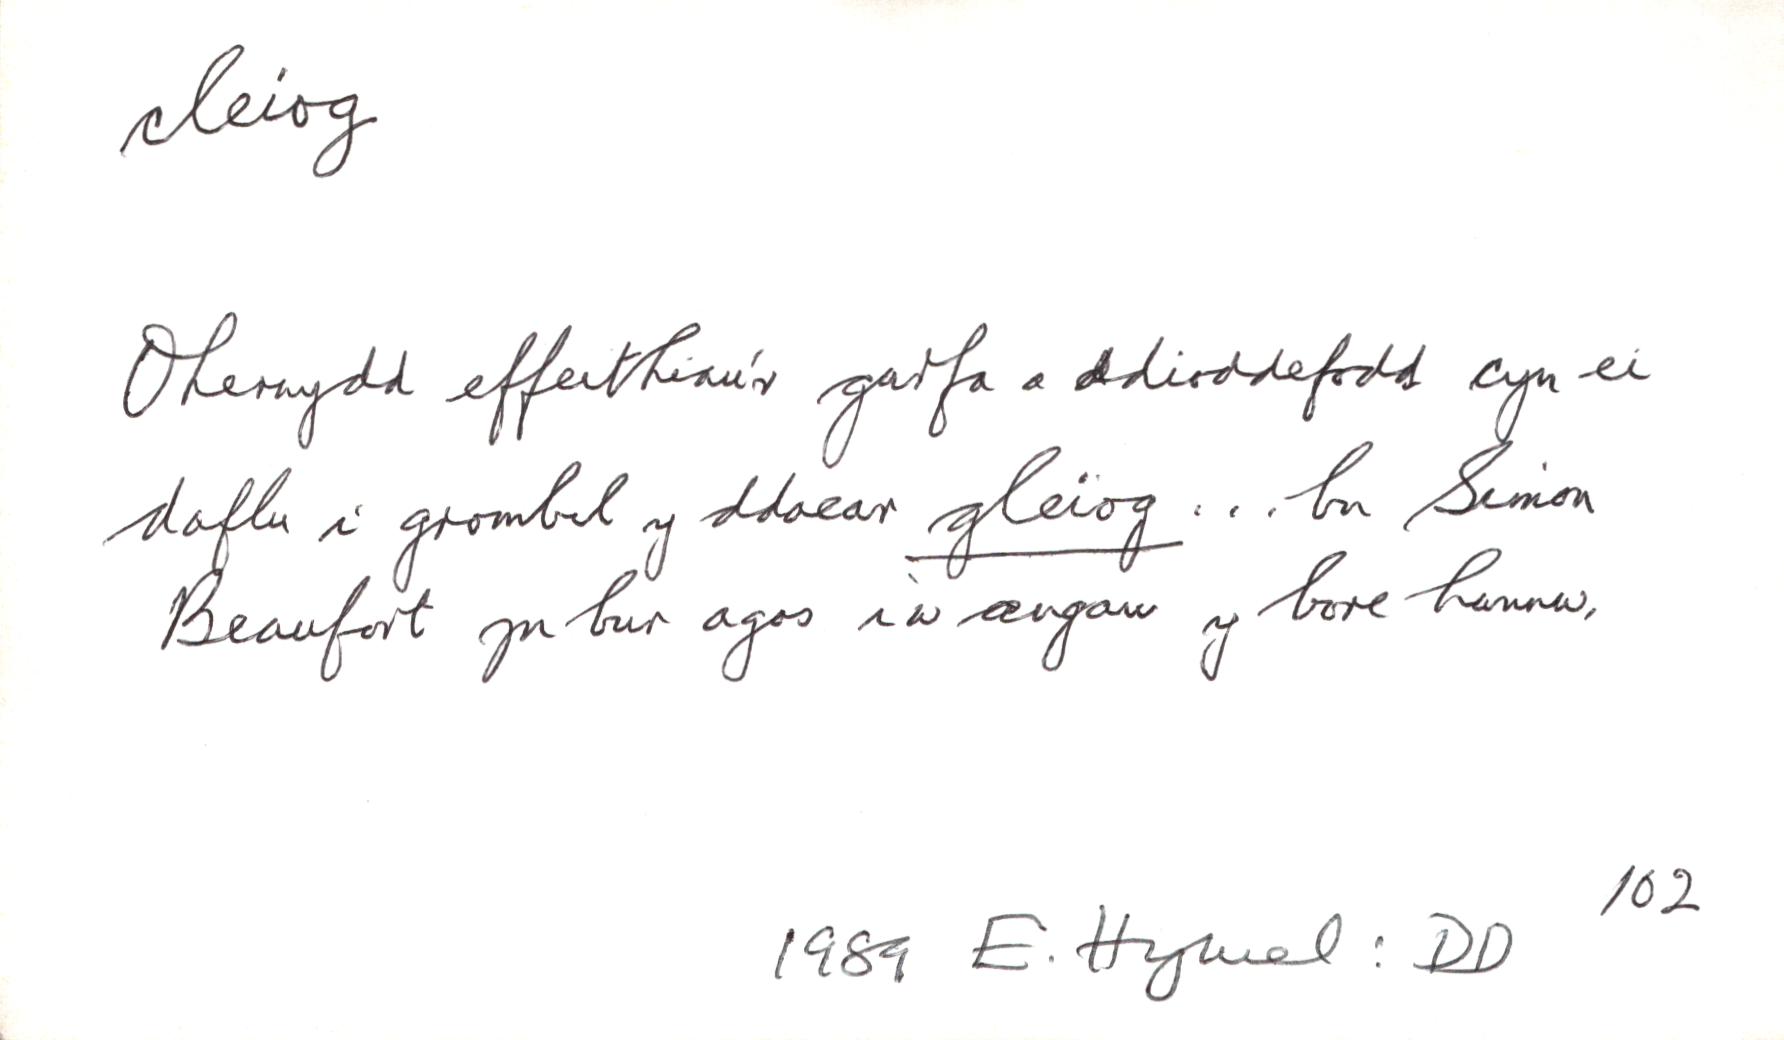 cleiog
Oherwydd effeithiau'r gurfa a ddioddefodd cyn ei
daflu i grombil y ddaear gleïog ... bu Simon
Beaufort yn bur agos i'w angau y bore hwnnw.
102
1989 E. Hywel : DD